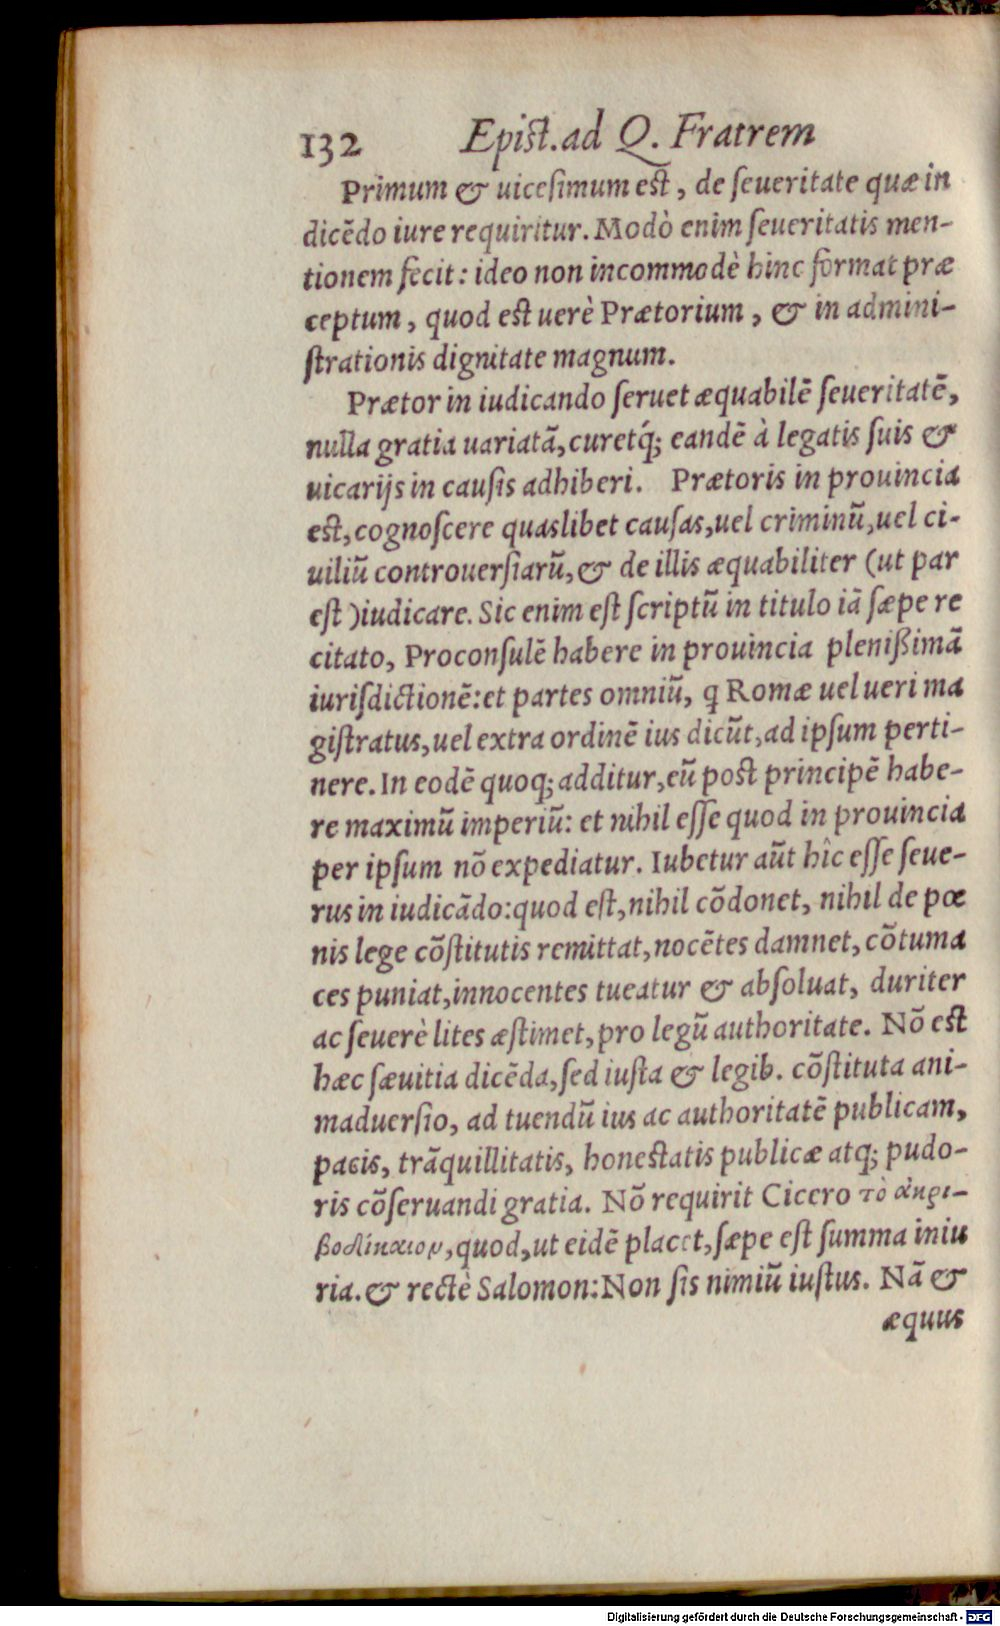 132 Epist. ad Q. Fratrem
Primum & uicesimum est, de seueritate quæ in
dicẽdo iure requiritur. Modò enim seueritatis men-
tionem fecit: ideo non incommodè hinc format præ
ceptum, quod est uerè Prætorium, & in admini-
strationis dignitate magnum.
Prætor in iudicando seruet æquabilẽ seueritatẽ,
nulla gratia uariatã, curetq́; eandẽ à legatis suis &
uicarijs in causis adhiberi. Prætoris in prouincia
est, cognoscere quaslibet causas, uel criminũ, uel ci-
uiliũ controuersiarũ, & de illis æquabiliter (ut par
est) iudicare. Sic enim est scriptũ in titulo iã sæpe re
citato, Proconsulẽ habere in prouincia plenißimã
iurisdictionẽ: et partes omniũ, q Romæ uel ueri ma
gistratus, uel extra ordinẽ ius dicũt, ad ipsum perti-
nere. In eodẽ quoq; additur, eũ post principẽ habe-
re maximũ imperiũ: et nihil esse quod in prouincia
per ipsum nõ expediatur. Iubetur aũt hîc esse seue-
rus in iudicãdo: quod est, nihil cõdonet, nihil de pœ
nis lege cõstitutis remittat, nocẽtes damnet, cõtuma
ces puniat, innocentes tueatur & absoluat, duriter
ac seuerè lites æstimet, pro legũ authoritate. Nõ est
hæc sæuitia dicẽda, sed iusta & legib. cõstituta ani-
maduersio, ad tuendũ ius ac authoritatẽ publicam,
pacis, trãquillitatis, honestatis publicæ atq; pudo-
ris cõseruandi gratia. Nõ requirit Cicero τὸ ἀκρι-
βοδίκαιον, quod, ut eidẽ placet, sæpe est summa iniu
ria. & rectè Salomon: Non sis nimiũ iustus. Nã &
æquus
Digitalisierung gefördert durch die Deutsche Forschungsgemeinschaft - DFG